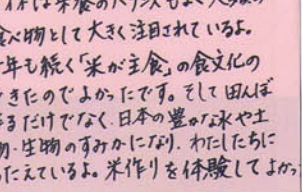 本は米食のバランスもよく
食べ物として大きく注目されているよ。
年も続く「米が主食」の食文化の
きたのでよかったです。そして田んぼ
るだけでなく、日本の豊かな水や土
物・生物のすみかになり、わたしたちに
たえているよ。米作りを体験してよかっ